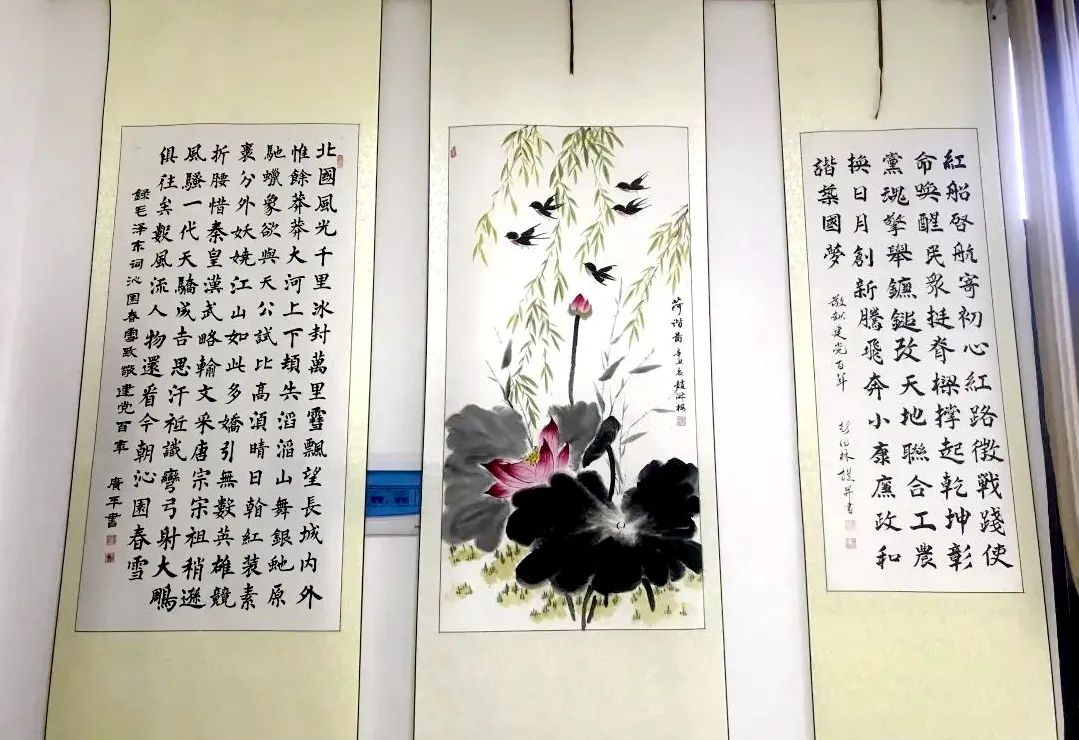 北國風光千里冰封萬里雪飄望長城内外
惟餘莽莽大河上下頓失滔滔山舞銀蛇原
馳蠟象欲與天公試比高須晴日看紅装素
裹分外妖嬈江山如此多嬌引無數英雄競
折腰惜秦皇漢武略輸文采唐宗宋祖稍遜
風騷一代天驕成吉思汗祗識彎弓射大鵰
俱往矣數風流人物還看今朝沁園春雪
録毛泽东词沁园春雪致敬建党百年 廣平書
荷谐图 辛丑
紅船啓航寄初心紅路徵戰踐使
命喚醒民衆挺脊樑撐起乾坤彰
黨魂擎舉鐮鎚改天地聯合工農
换日月創新騰飛奔小康廉政和
諧築國夢
敬献建党百年
撰并書